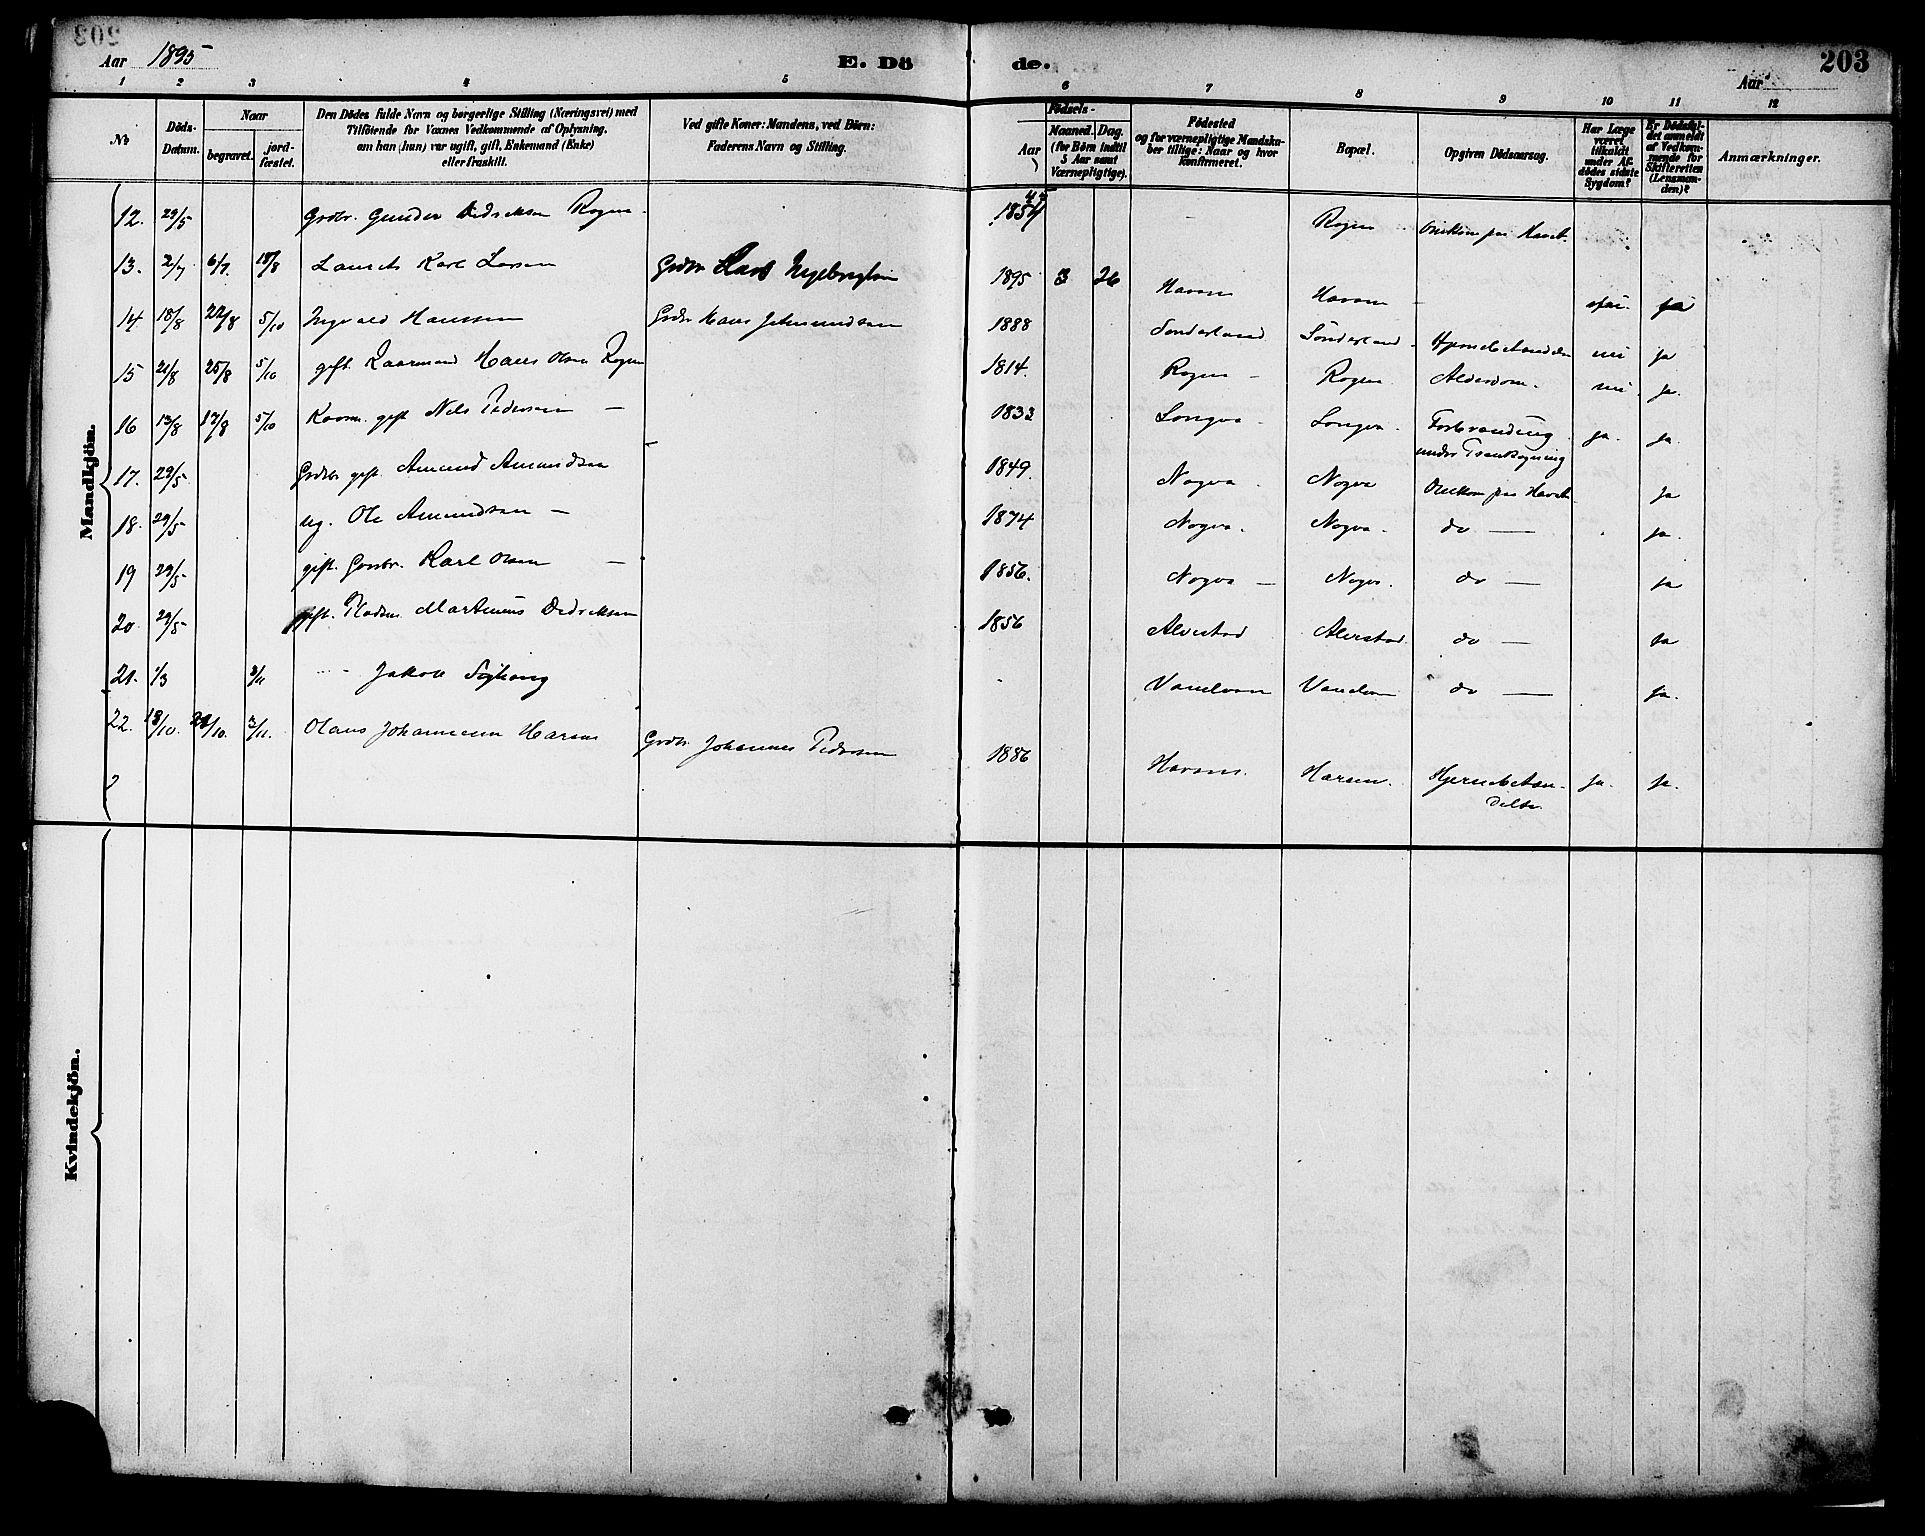 203
Aar 1895 E. Dö de. Aar 203
1 2 3 4 5 6 7 8 9 10 11 12
No
Döds-Datum.
Naar
begravet.
jord-fæstet.
Den Dödes fulde Navn og borgerlige Stilling (Næringsvei) med
Tilföiende for Voxnes Vedkommende af Oplysning,
om han (hun) var ugift, gift, Enkemand (Enke)
eller fraskilt.
Ved gifte Koner: Mandens, ved Börn:
Faderens Navn og Stilling.
Födsels-
Aar
Maaned. Dag.
(for Börn indtil
5 Aar samt
Værnepligtige).
Födested
og for værnepligtige Mandska-
ber tillige: Naar og hvor
konfirmeret.
Bopæl.
Opgiven Dödsaarsag.
Har Læge
været
tilkaldt
under Af-
dödes sidste
Sygdom?
Er Dödsfal-
det anmeldt
af Vedkom-
mende for
Skifteretten
(Lensman-
den)?
Anmærkninger.
Mandkjön.
12. 29/5 Grdbr. Gunder Didriksen Rogne 1854 Rogne Omkom paa Havet
13. 2/7 6/7 18/8 Laurits Karl Larsen Grdbr Lars Ingebrigtsen 1895 3 26 Havsen Havsen ja
14 18/8 22/8 5/10 Ingvald Hanssen Grdbr Hans 1888 Sönderland Sönderland nei ja
15 21/8 25/8 5/10 gift. Kaarmand Hans Olsen Rogne 1814. Rogne Rogne Alderdom nei ja
16 13/8 17/8 5/10 Kaarm. gift Nils Pedersen 1833 Longva Longva. Forbrænding
under Trankogning ja. ja.
17. 29/5 Grdbr gift. Amund Amundsen 1849. Nogva Nogva Omkom paa Havet ja
18. 29/5 ug. Ole Amundsen 1874 Nogva. Nogva. do ja.
19 29/5 gift. Grdbr. Karl Olsen 1856. Nogva Nogva. do ja
20 29/5 gift. Pladsm. Martinus Didriksen 1856 Alvestad Alvestad do ja
21. 1/3 3/11 Jakob do ja.
22. 18/10. 24/10. 3/11. Olaus Johannesen Harsem Grdbr. Johannes Pedersen 1886 Harsem. Harsem. Hjernebetæn-
delse ja. ja.
Kvindekjön.